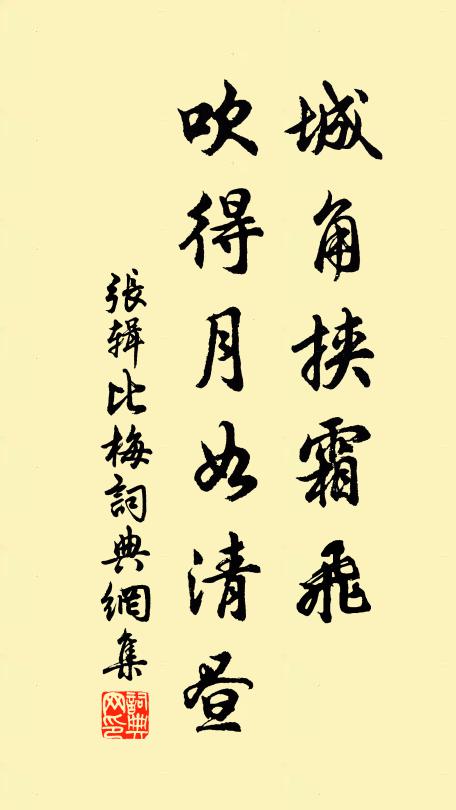 城角挟霜飛
吹得月如清昼
張辑比梅詞典網集
詞典网印